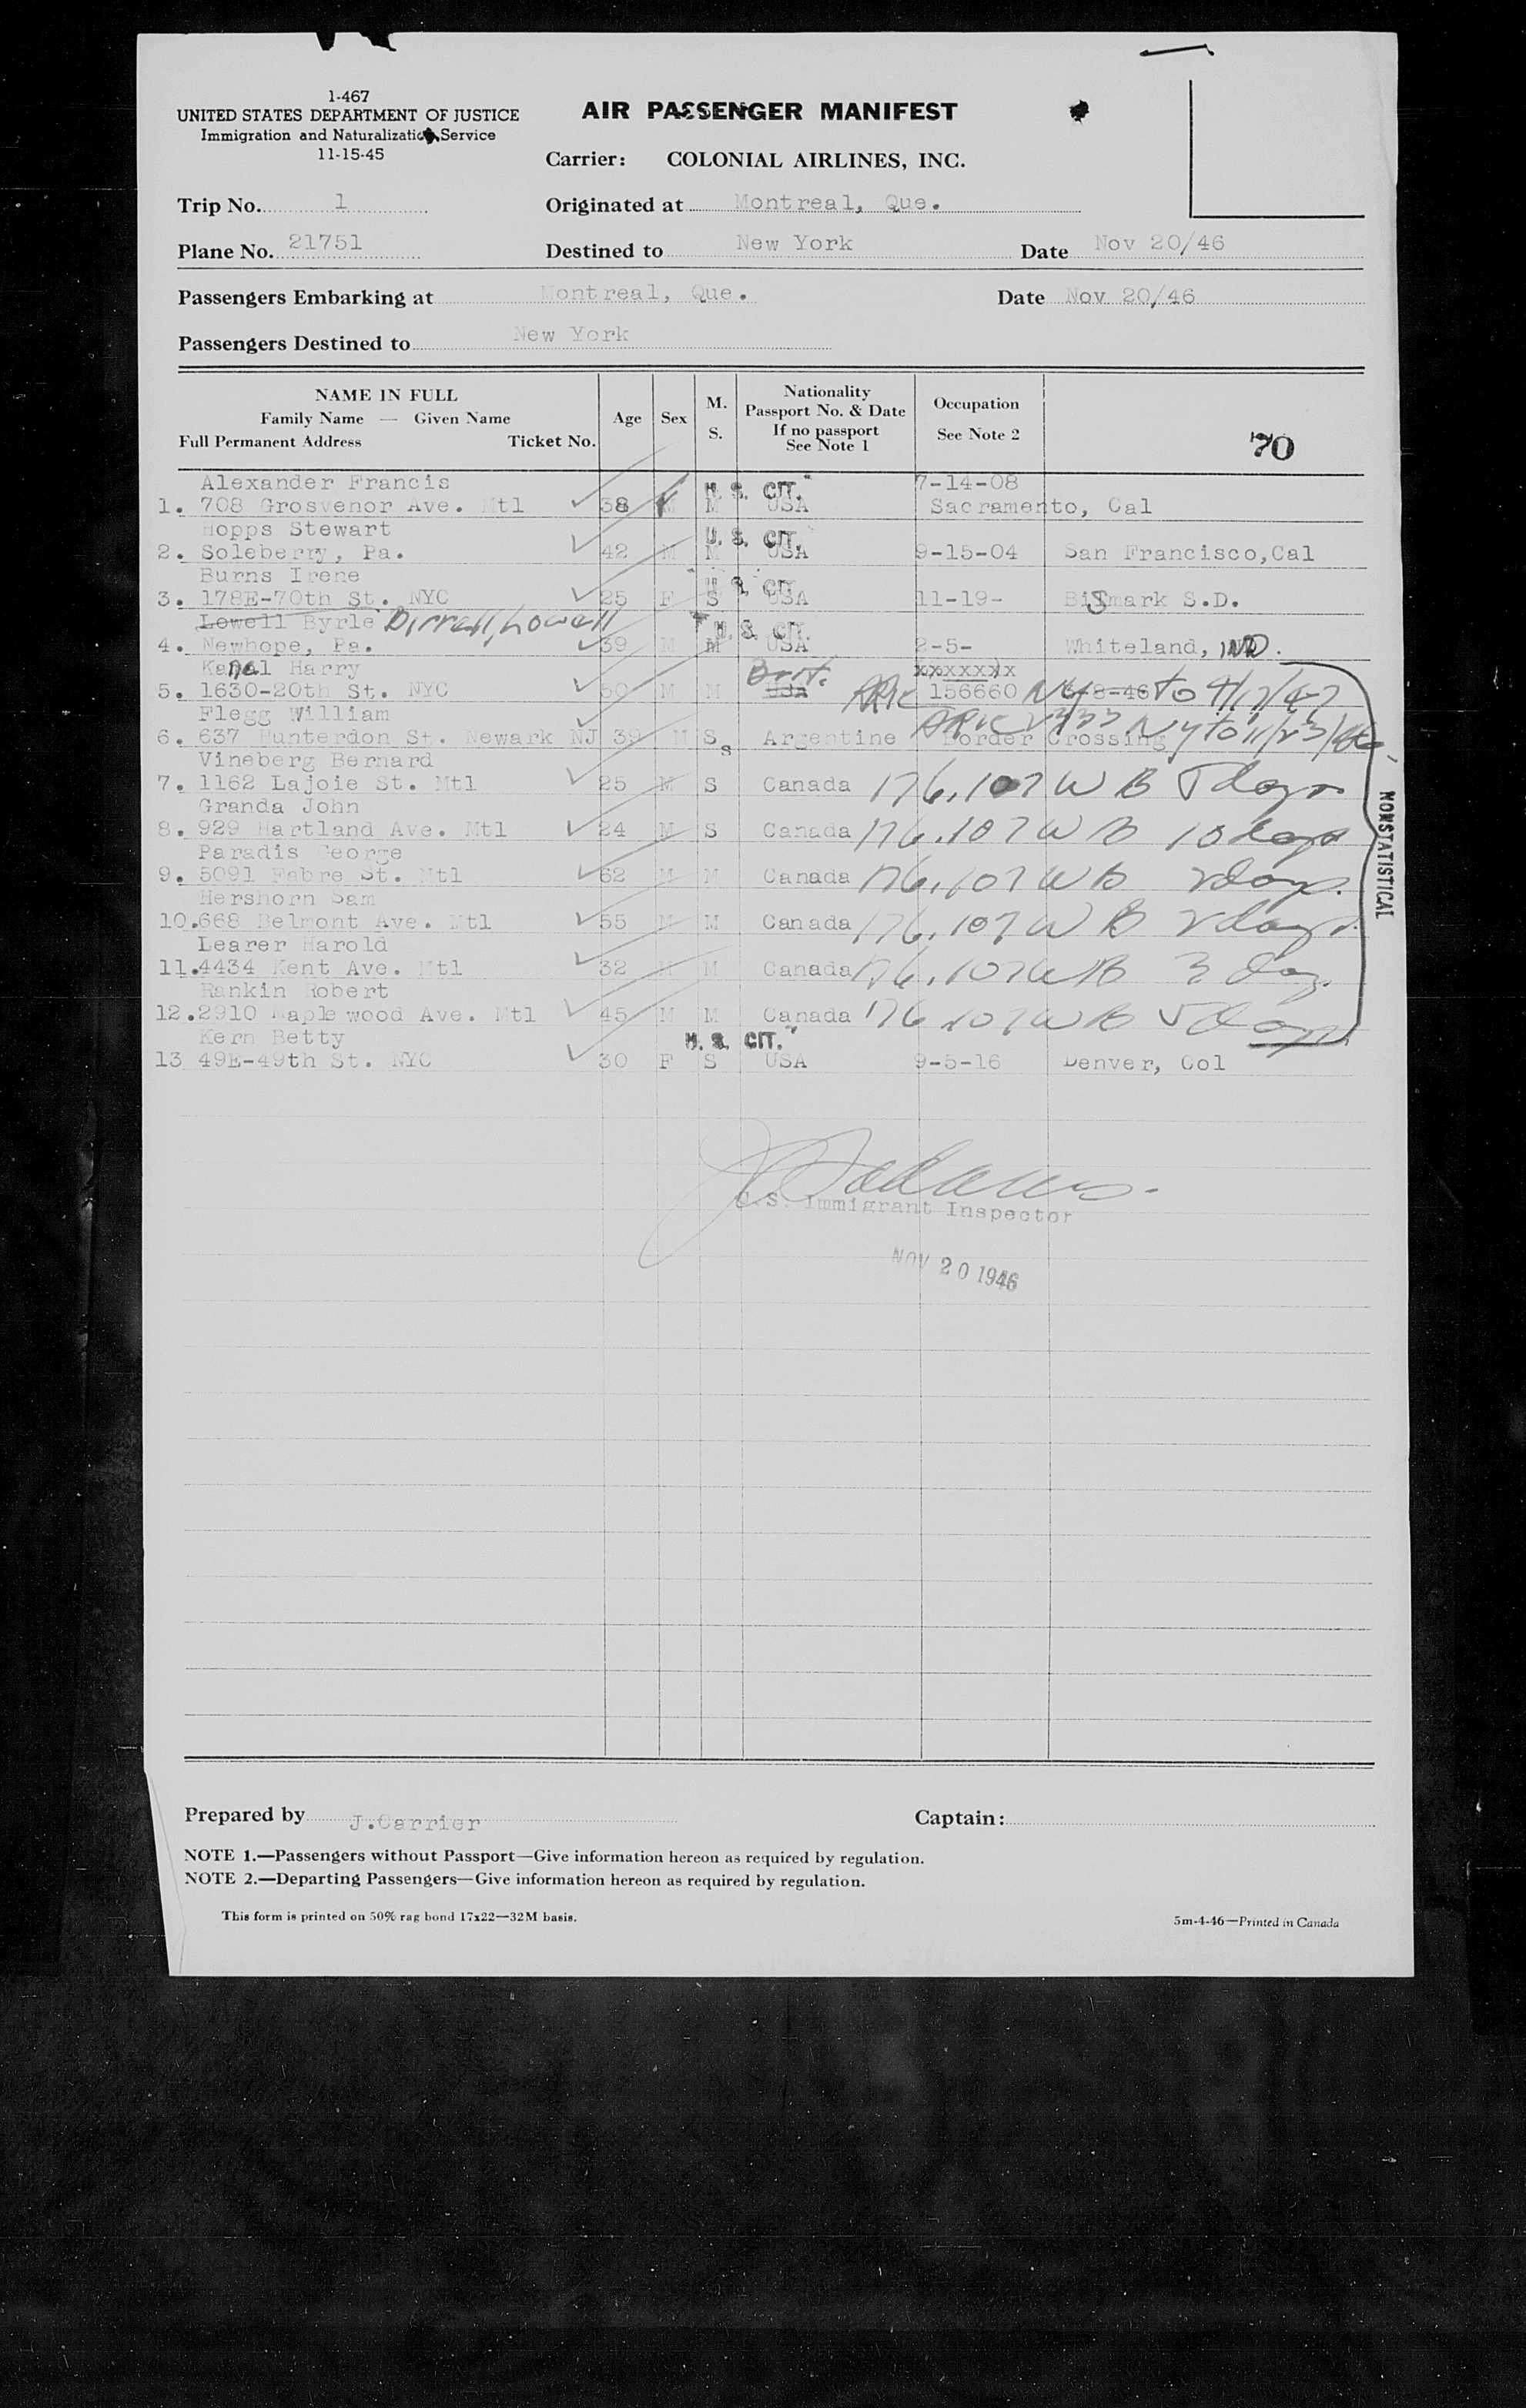 1-467
UNITED STATES DEPARTMENT OF JUSTICE
Immigration and Naturalization Service
11-15-45
AIR PASSENGER MANIFEST
Carrier: COLONIAL AIRLINES, INC.
Trip No. 1 Originated at Montreal, Que.
Plane No. 21751 Destined to New York Date Nov 20/46
Passengers Embarking at Montreal, Que. Date Nov 20/46
Passengers Destined to New York
NAME IN FULL
Family Name — Given Name
Full Permanent Address Ticket No.
Age
Sex
M.
S.
Nationality
Passport No. & Date
If no passport
See Note 1
Occupation
See Note 2
70
Alexander Francis U. S. CIT. 7-14-08
1. 708 Grosvenor Ave. Mtl 38 M M USA Sacramento, Cal
Hopps Stewart U. S. CIT.
2. Soleberry, Pa. 42 M M USA 9-15-04 San Francisco,Cal
Burns Irene U. S. CIT.
3. 178E-70th St. NYC 25 F S USA 11-19- Bismark S.D.
Lowell Byrle Birrell, Lowell U. S. CIT.
4. Newhope, Pa. 39 M M USA 2-5- Whiteland, IND.
Kanal Harry Brit. xxxxxxx
5. 1630-20th St. NYC 50 M M USA 156660 NY 8-48-46 to 9/17/47
Flegg William
6. 637 Hunterdon St. Newark NJ 39 M S s Argentine Border Crossing NY to 11/23/46
Vineberg Bernard
7. 1162 Lajoie St. Mtl 25 M S Canada 176.107 W B 5 days
Granda John
8. 929 Hartland Ave. Mtl 24 M S Canada 176.107 W B 10 days
Paradis George
9. 5091 Fabre St. Mtl 62 M M Canada 176.107 W B 2 days.
Hershorn Sam
10. 668 Belmont Ave. Mtl 55 M M Canada 176.107 W B 2 days.
Learer Harold
11. 4434 Kent Ave. Mtl 32 M M Canada 176.107 W B 3 day.
Rankin Robert
12. 2910 Maplewood Ave. Mtl 45 M M Canada 176.107 W B 5 days
Kern Betty U. S. CIT.
13 49E-49th St. NYC 30 F S USA 9-5-16 Denver, Col
NONSTATISTICAL
U.S. Immigrant Inspector
NOV 20 1946
Prepared by J.Carrier Captain:
NOTE 1.—Passengers without Passport—Give information hereon as required by regulation.
NOTE 2.—Departing Passengers—Give information hereon as required by regulation.
This form is printed on 50% rag bond 17x22—32M basis.
5m-4-46—Printed in Canada